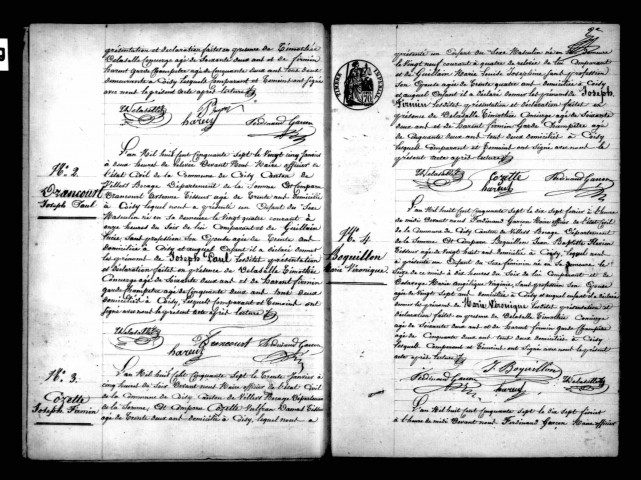 présentation et déclaration faites en présence de Timothée
Delaballe Concierge agé de Soixante deux ans et de firmin
harent Garde Champêtre agé de Cinquante deux ans tous deux
domiciliés à Cisy lesquels Comparant et Témoins ont signé
avec nous le présent acte après lecture
harent Ferdinand Garcon
N.° 2.
Drancourt
Joseph Paul
L'an Mil huit cent Cinquante Sept le Vingt cinq Janvier
à deux heures de relevée Devant Nous Maire officier de
l'état Civil de la Commune de Cisy Canton de
Villers Bocage Département de la Somme Est Comparu
Drancourt Tisseur agé de Trente ans domicilié
à Cisy lequel nous a présenté un Enfant du Sexe
Masculin né en sa demeure le vingt quatre courant à
onze heures du Soir de lui Comparant et de Guillain
Sans profession Son Epouse agée de Trente ans
domiciliée à Cisy et auquel Enfant il a déclaré donner
les prénoms de Joseph Paul Lesdites présentation
et déclaration faites en présence de Delaballe Timothée
Concierge agé de Soixante deux ans et de harent firmin
Garde Champêtre agé de Cinquante deux ans tous deux
domiciliés à Cisy, Lesquels Comparant et Témoins ont
signé avec nous le présent acte après lecture
Drancourt
harent Ferdinand Garcon
N.° 3.
Cozette
Joseph Firmin
L'an Mil huit cent Cinquante Sept le Trente Janvier à
Cinq heures du Soir Devant Nous Maire officier de l'état Civil
de la Commune de Cisy Canton de Villers Bocage Département
de la Somme, Est Comparu Cozette Vulfran Tisseur
agé de Trente deux ans domicilié à Cisy, lequel nous a
présenté un Enfant du Sexe Masculin né en sa demeure
le Vingt neuf courant à quatre heures de relevée de lui Comparant
et de Guillain Marie Louise Joséphine Sans profession
Son Epouse agée de quatre ans domiciliée à Cisy
et auquel Enfant il a déclaré donner les prénoms de Joseph
Firmin Lesdites présentation et déclaration faites en
présence de Delaballe Timothée Concierge agé de Soixante
deux ans et de harent firmin Garde Champêtre agé
de Cinquante deux ans tous deux domiciliés à Cisy
lesquels Comparant et Témoins ont signé avec nous le
présent acte après lecture
Cozette Ferdinand Garcon
harent
N.° 4
Boquillon
Marie Véronique
L'an Mil huit cent Cinquante Sept le dix Sept février à l'heure
de midi Devant nous Ferdinand Garcon Maire officier de l'état Civil
de la Commune de Cisy Canton de Villers Bocage Département
de la Somme, Est Comparu Boquillon Jean Baptiste
agé de Vingt huit ans domicilié à Cisy, lequel nous
a présenté un Enfant du Sexe féminin né en sa demeure le
Seize de ce mois à dix heures du Soir de lui Comparant et de
Marie Angélique Sans profession Son Epouse
agée de Vingt Sept ans domiciliée à Cisy et auquel Enfant il a déclaré
donner les prénoms de Marie Véronique Lesdites présentation et
déclaration faites en présence de Delaballe Timothée Concierge
agé de Soixante deux ans et de harent firmin Garde Champêtre
agé de Cinquante deux ans tous deux domiciliés à Cisy
lesquels Comparant et Témoins ont signé avec nous le présent
acte après lecture
J. Boquillon
Ferdinand Garcon harent
L'an Mil huit cent Cinquante Sept le dix Sept février
à l'heure de midi Devant nous Ferdinand Garcon Maire officier